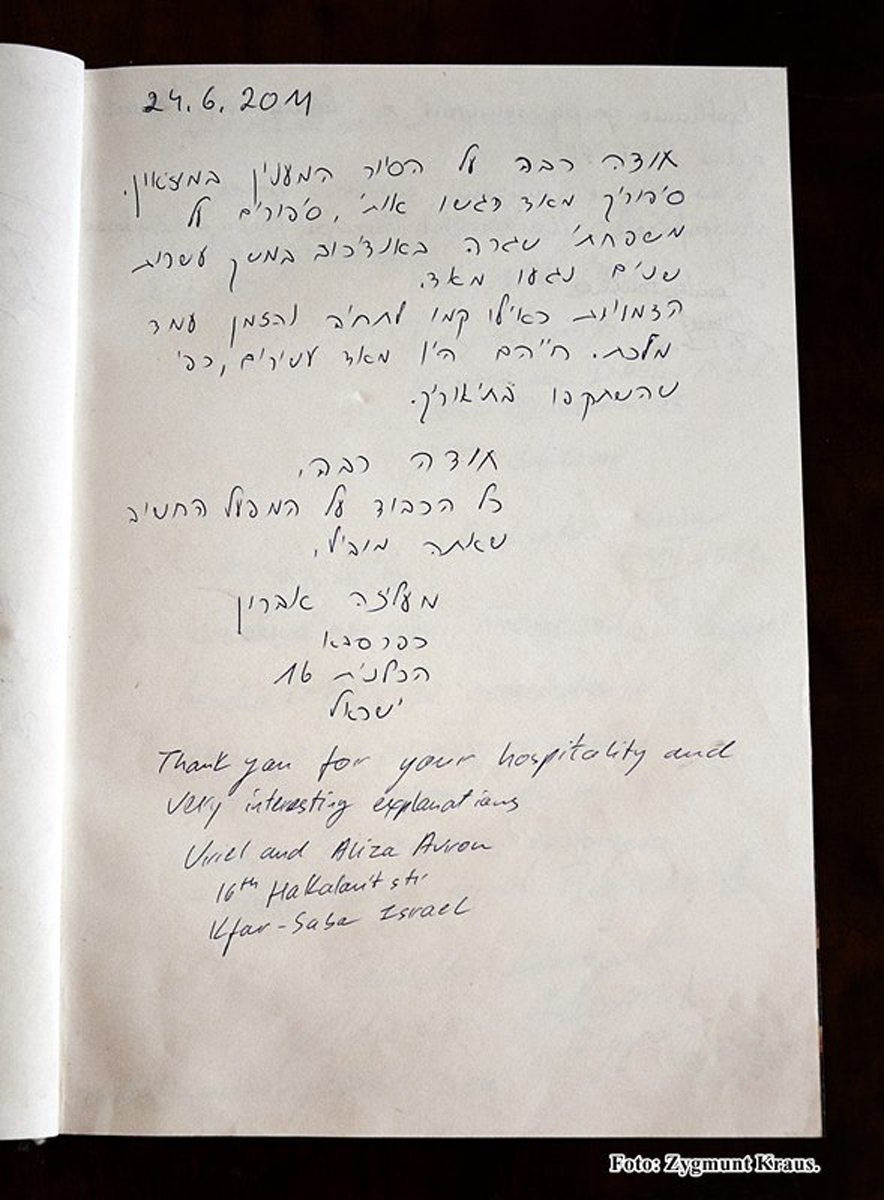 24.6.2011
תודה רבה על הסיור המענין במוזיאון.
סיפוריך מאד ריגשו אותי, סיפורים על
משפחתי שגרה באנדריכוב במשך עשרות
שנים נגעו מאד.
הדמויות כאילו קמו לתחיה והזמן עמד
מלכת. חייהם היו מאד עשירים, כפי
שהשתקפו בתיאוריך.
תודה רבה,
כל הכבוד על המפעל החשוב
שאתה מוביל,
עליזה אברון
כפר סבא
הכלנית 16
ישראל
Thank you for your hospitality and
very interesting explanations
Uriel and Aliza Avron
16th HaKalanit str
Kfar-Saba Israel
Foto: Zygmunt Kraus.